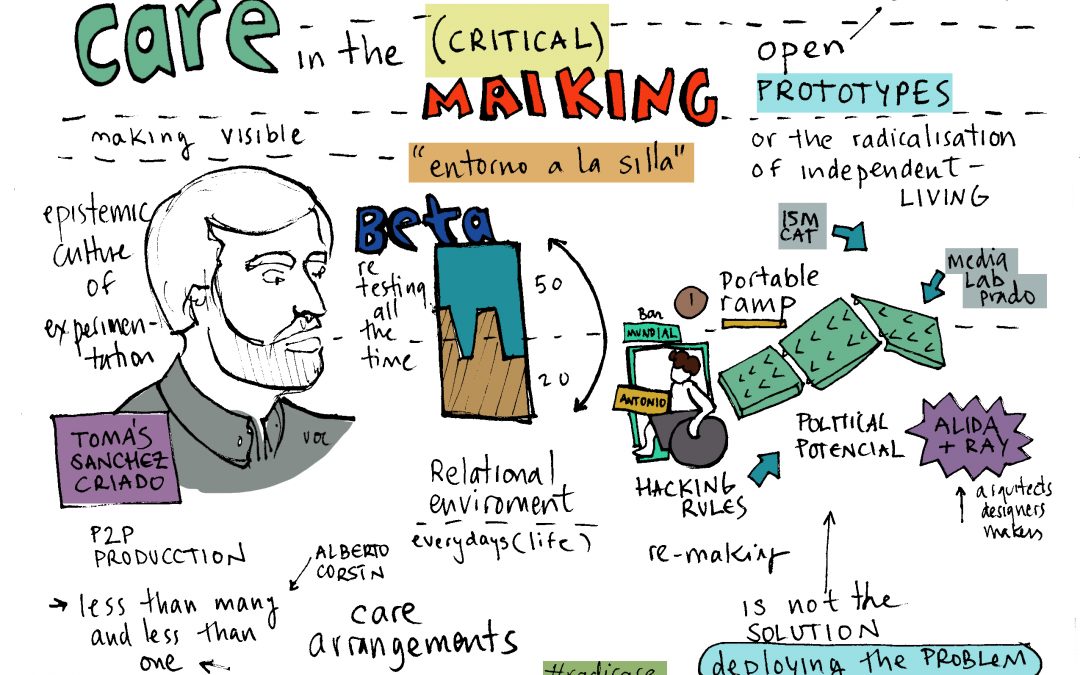 care
in the
(CRITICAL)
MAIKING
open
PROTOTYPES
making visible
"entorno a la silla"
or the radicalisation
of independent-
LIVING
epistemic
culture
of
experimen-
tation
TOMÁS
SANCHEZ
CRIADO
VOC
Beta
re
testing
all
the
time
50
20
15M
CAT
Media
Lab
Prado
1
Portable
ramp
Ban
MUNDIAL
ANTONIO
HACKING
RULES
POLITICAL
POTENCIAL
ALIDA
+ RAY
arquitects
designers
makers
Relational
enviroment
everydays (life)
P2P
PRODUCCTION
ALBERTO
CORSÍN
less than many
and less than
one
care
arrangements
re-making
is not the
SOLUTION
deploying the PROBLEM
#radicare